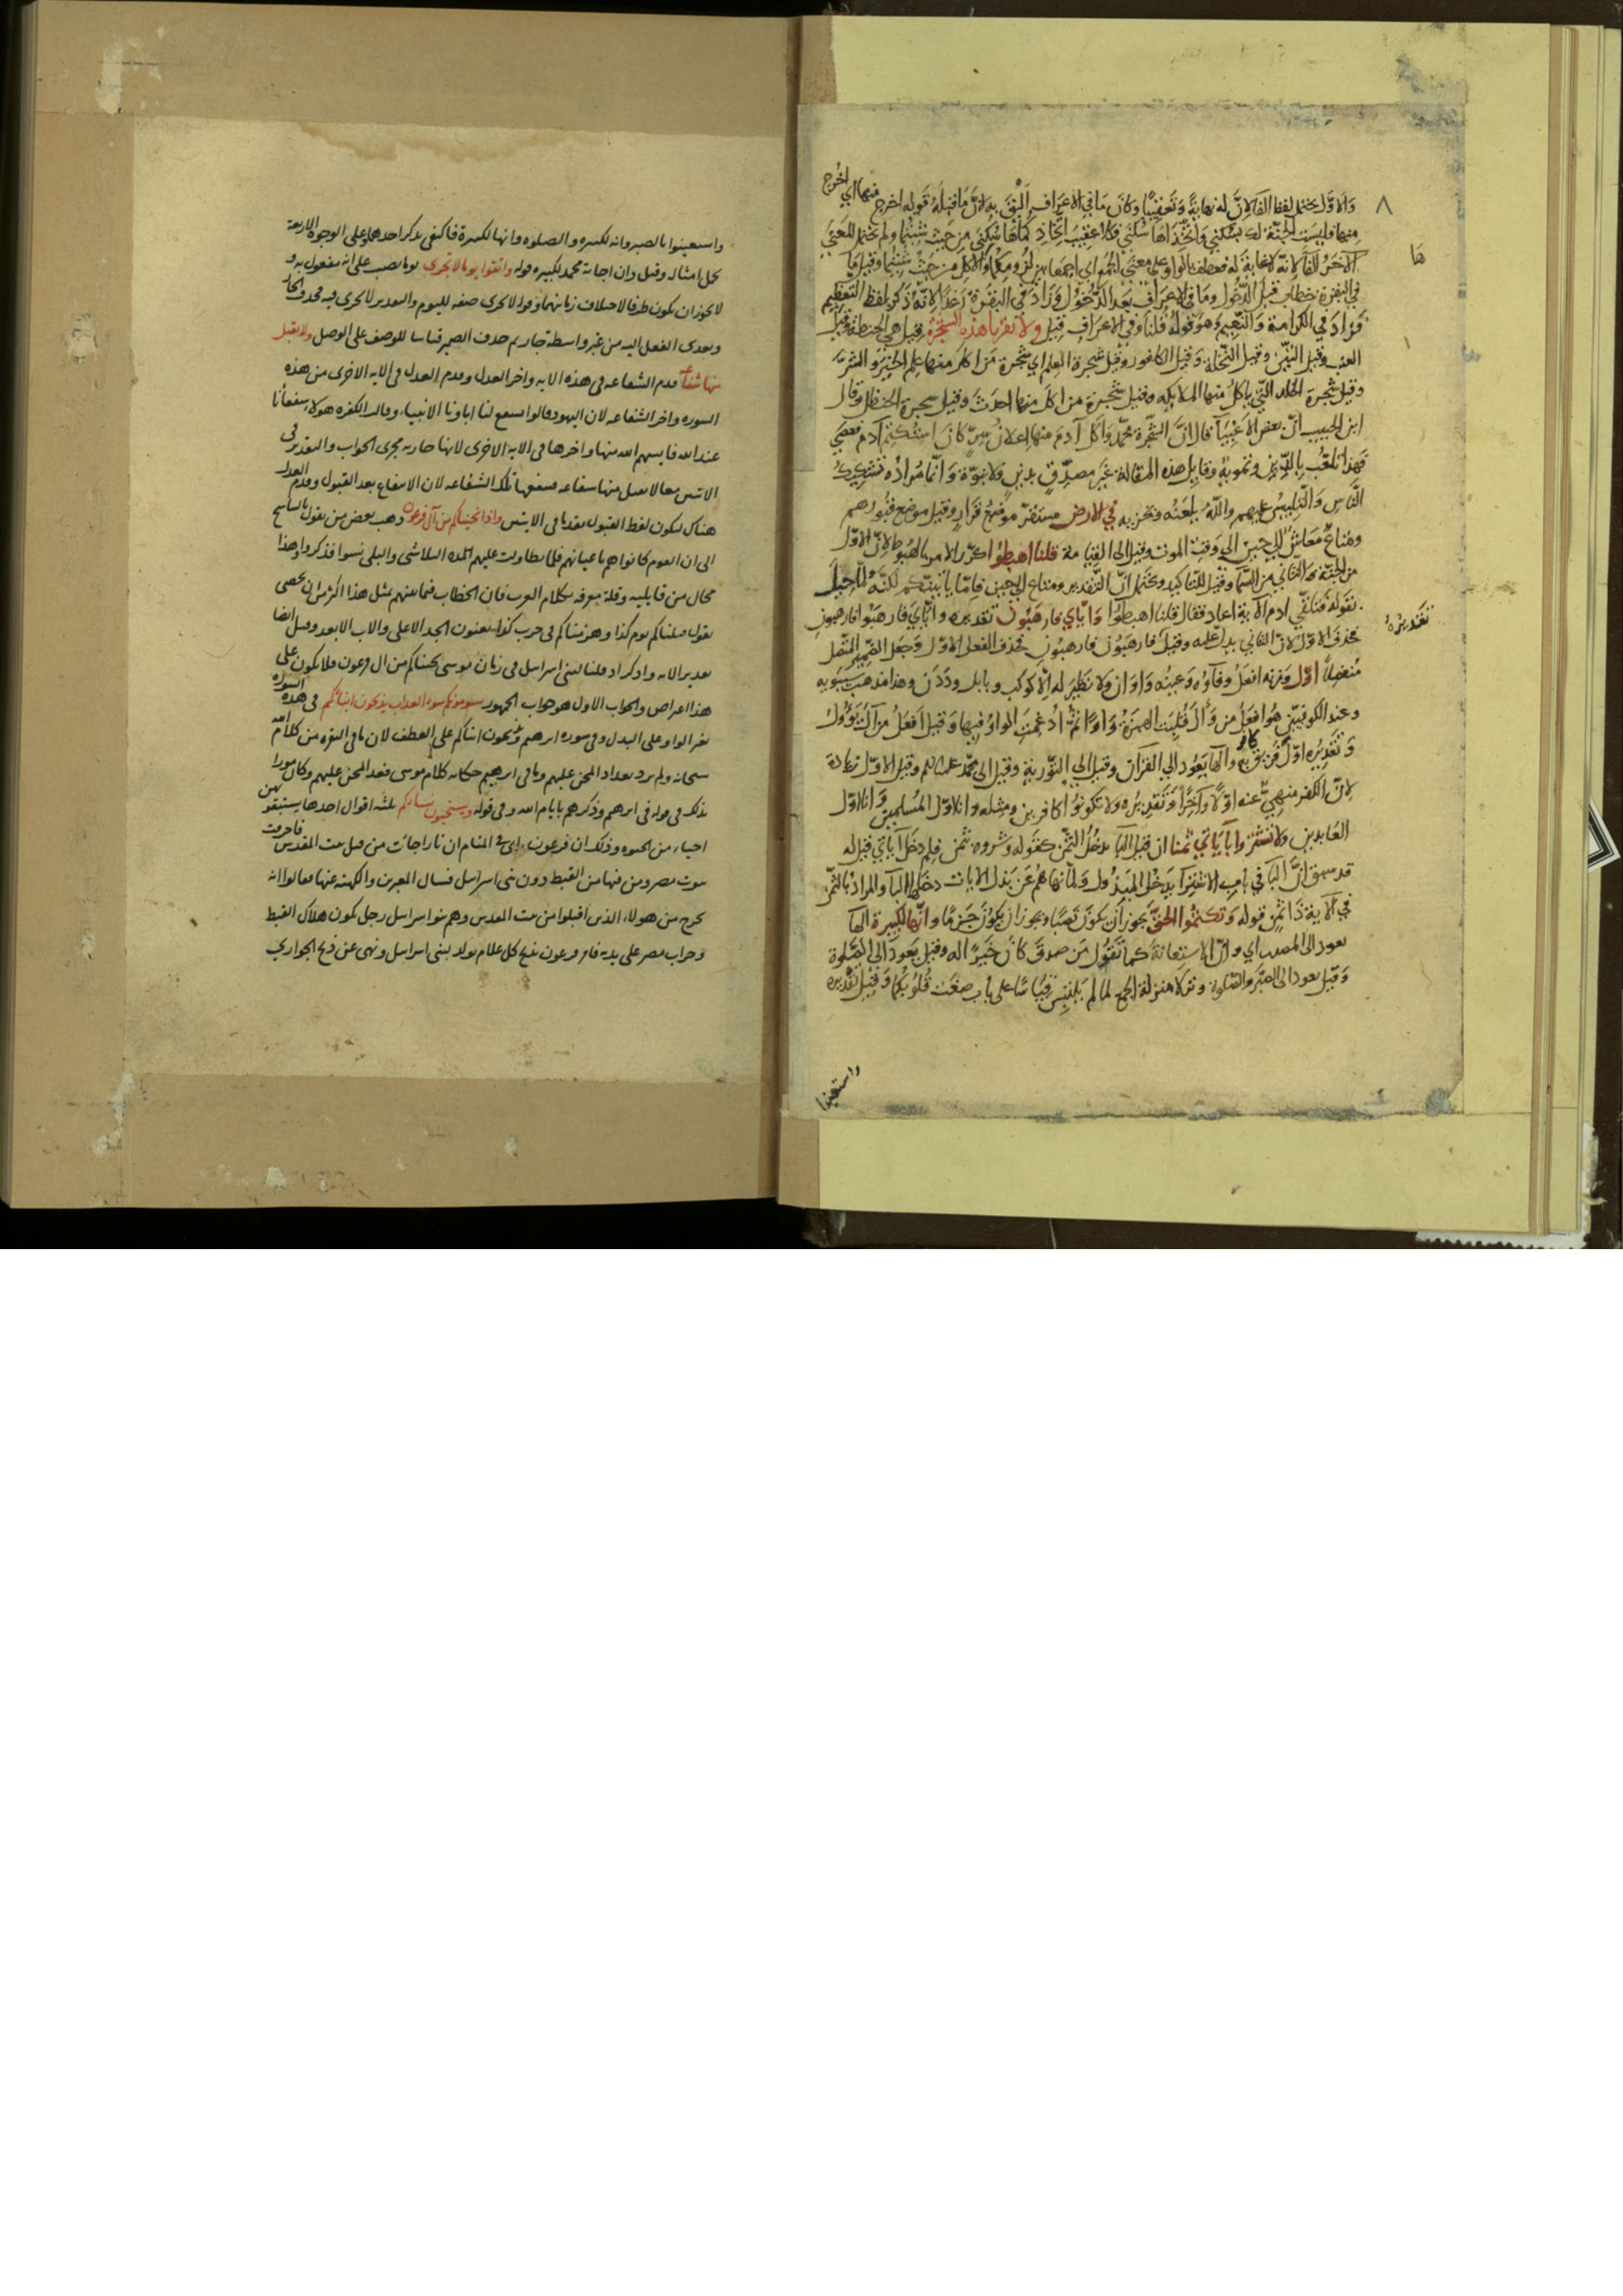 والاول يحتمل لفظ الفا لان له نهاية وتعقيبا وكان ما في الاعراف اليق به لان ما قبله قوله اخرج منها اي اخرج
منها فليست الجنة لك بسكنى واتخذاها سكنى فكلا عقيب اتخاذكماها سكنى من حيث شئتما ولم يحتمل المعنى
الآخر الفا لانه لا غاية له فعطف بالواو على معنى الجمع اي اجمعا بين لزومكما والاكل من حيث شئتما وقيل ما
في البقرة خطاب قبل الدخول وما في الاعراف بعد الدخول وزاد في البقرة رغدا لانه ذكر بلفظ التعظيم
فزاد في الكرامة والنعيم وهو قوله قلنا وفي الاعراف قيل ولا تقربا هذه الشجرة قيل هي الحنطة وقيل
العنب وقيل التين وقيل النخلة وقيل الكافور وقيل شجرة العلم اي شجرة من اكل منها علم الخير والشر
وقيل شجرة الخلد التي ياكل منها الملائكه وقيل شجرة من اكل منها احدث وقيل شجرة الحنظل وقال
ابن الحبيب ان بعض الاغبيا قال ان الشجرة محمد واكل آدم منها اعلان سر كان استكتم آدم فعصى
فهذا تلعب بالدين وتمويه وقايل هذه المقالة غير مصدق بدين ولا نبوة وانما مراده تشكيك
الناس والتلبيس عليهم والله يلعنه ويخزيه في الارض مستقر موضع قرار وقيل موضع قبورهم
ومتاع معاش الى حين الى وقت الموت وقيل الى القيامة قلنا اهبطوا كرر الامر بالهبوط لان الاول
من الجنة والثاني من السما وقيل للتاكيد ويحتمل ان التقدير ومتاع الى حين فاما ياتينكم لكنه لما حيل
بقوله فتلقى ادم الآية اعاد فقال قلنا اهبطوا واياي فارهبون تقديره واياي فارهبوا فارهبون
تقديره
ها
٨
فحذف الاول لان الثاني يدل عليه وقيل فارهبون فارهبون فحذف الفعل الاول وجعل الضمير المتصل
منفصلا اول وزنه افعل وفاؤه وعينه واوان ولا نظير له الا كوكب وبابل وددن وهذا مذهب سيبويه
وعند الكوفيين هو افعل من وأل فقلبت الهمزة واوا ثم ادغمت الواو فيها وقيل افعل من آل يؤول
وتقديره اول فريق كافر والها يعود الى القرآن وقيل الى التورية وقيل الى محمد عليه السلم وقيل الاول زيادة
لان الكفر منهي عنه اولا وآخرا وتقديره ولا تكونوا كافرين ومثله وانا اول المسلمين وانا اول
العابدين ولا تشتروا بآياتي ثمنا ان قيل البا يدخل الثمن كقوله وشروه بثمن فلم دخل آياتي قيل له
قد سبق ان البا في باب الاشترا يدخل المبذول ولما نهاهم عن بذل الايات دخلها البا والمراد بالثمن
في الآية ذا ثمن قوله وتكتموا الحق يجوز ان يكون نصبا ويجوز ان يكون جزما وانها لكبيرة الها
يعود الى المصدر اي وان الاستعانة كما تقول من صدق كان خيرا له وقيل يعود الى الصلوة
وقيل يعود الى الصبر والصلوة ونزلا منزلة الجمع لما لم يلتبس قياسا على باب صغت قلوبكما وقيل تقديره
واستعينوا
واستعينوا بالصبر وانه لكبير والصلوه وانها لكبيرة فاكتفى بذكر احدهما وعلى الوجوه الاربعة
يحمل امثاله وقيل وان اجابة محمد لكبيره قوله واتقوا يوما لا تجزى يوما نصب على انه مفعول به و
لا يجوز ان يكون ظرفا لاختلاف زمانيهما وقوله لا تجزى صفه لليوم والتقدير لا تجزى فيه فحذف الجار
وتعدى الفعل اليه من غير واسطة جار ثم حذف الضمير قياسا للوصف على الوصل ولا يقبل
منها شفاعة قدم الشفاعه في هذه الايه واخر العدل وقدم العدل في الايه الاخرى من هذه
السوره واخر الشفاعه لان اليهود قالوا يشفع لنا اباونا الانبياء وقالت الكفره هولاء شفعاؤنا
عند الله فايسهم الله منها واخرها في الايه الاخرى لانها جاريه مجرى الجواب والتقدير في
الايتين معا لا تقبل منها شفاعه فتنفعها تلك الشفاعه لان الانتفاع بعد القبول وقدم العدل
هناك ليكون لفظ القبول مقدما في الايتين واذا نجيناكم من آل فرعون ذهب بعض من يقول بالتناسخ
الى ان القوم كانوا هم باعيانهم فلما تطاولت عليهم المدة التلاشى والبلى نسوا فذكروا وهذا
محال من قايليه وقلة معرفه بكلام العرب فان الخطاب فيما بينهم بمثل هذا اكثر من ان يحصى
يقول قتلناكم يوم كذا وهزمناكم في حرب كذا يعنون الجد الاعلى والاب الابعد وقيل ايضا
تقدير الايه واذكر اذ قلنا لبني اسرايل في زمان موسى نجيناكم من ال فرعون فلا يكون على
هذا اعتراض والجواب الاول هو جواب الجمهور يسومونكم سوء العذاب يذبحون ابناءكم في هذه السورة
بغير الواو على البدل وفي سوره ابرهيم ويذبحون ابناكم على العطف لان ما في البقره من كلام الله
سبحانه ولم يرد تعداد المحن عليهم وما في ابرهيم حكايه كلام موسى فعد المحن عليهم وكان مامورا
بذلك في قوله في ابرهيم وذكرهم بايام الله وفي قوله ويستحيون نساءكم ثلثه اقوال احدها يستبقونهن
احياء من الحيوه وذلك ان فرعون راى في المنام ان نارا جاءت من قبل بيت المقدس فاحرقت
بيوت مصر ومن فيها من القبط دون بنى اسرايل فسال المعبرين والكهنه عنها فقالوا انه
يخرج من هولاء الذين اقبلوا من بيت المقدس وهم بنو اسرايل رجل يكون هلاك القبط
وخراب مصر على يديه فامر فرعون بذبح كل غلام يولد لبنى اسرايل ونهى عن ذبح الجواري